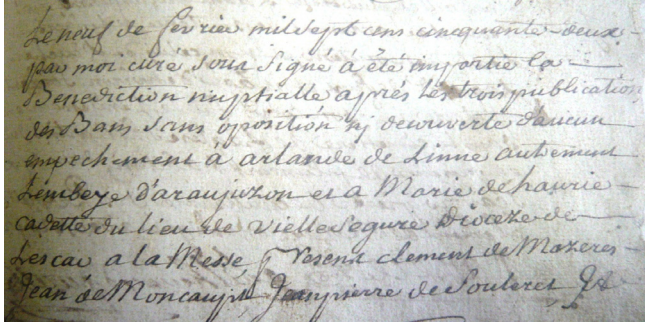 Le neuf de fevrier mil sept cens cinquante-deux
par moi curé sous signé à été impartie la
Benediction nuptialle après les trois publication
des Bans sans oposition nj decouverte daucun
empechement à arlande de Linne autrement
Lembeye d'araujuzon et a Marie de haurie
cadette du lieu de vielle segure Dioceze de
Lescar a la Messe presens clement de Mazeres
Jean de Moncaupt Jeanpierre de Souleret